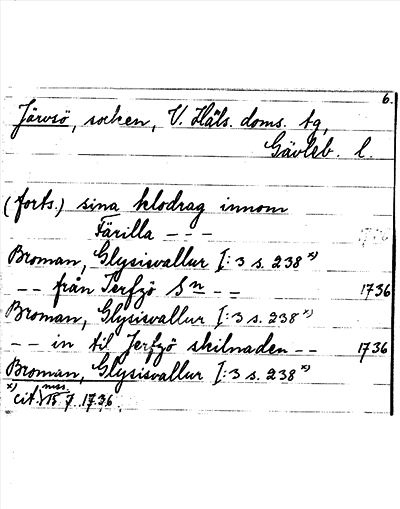 6.
Järvsö, socken, V. Häls. doms. tg,
Gävleb. l.
(forts.) sina klodrag innom
Färilla - - - 1736
Broman, Glysisvallur I:3 s. 238 x)
- - från Jerfzö Sn - - 1736
Broman, Glysisvallur I:3 s. 238 x)
- - in til Jerfzö skilnaden - - 1736
Broman, Glysisvallur I:3 s. 238 x)
x) cit. mss. 15/7 1736